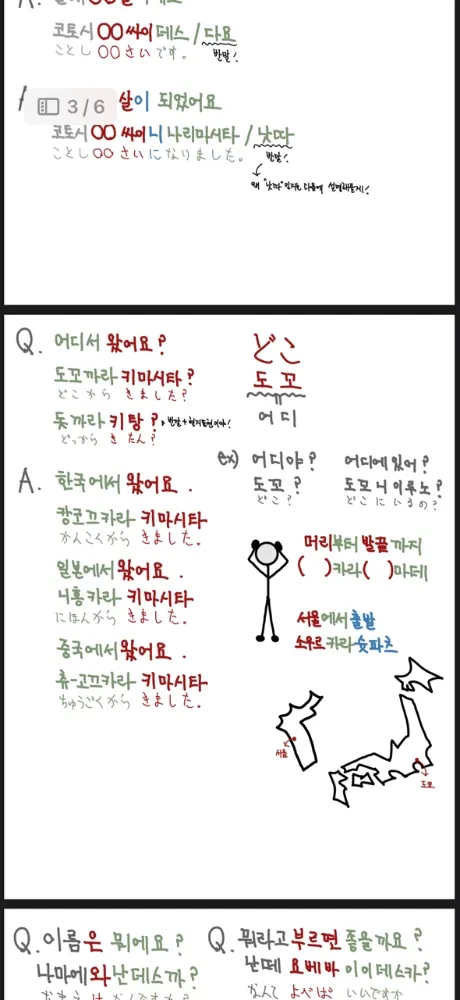 코토시 OO 싸이 데스 / 다요
ことし OO さい です。 반말!
살이 되었어요
3/6
코토시 OO 싸이니 나리마시타 / 낫따
ことし OO さい に なりました。 반말!
왜 "낫따"인지는 다음에 설명해볼게!
Q. 어디서 왔어요?
도꼬까라 키마시타?
どこから きました?
돗까라 키탕?
どっから きたん?
どこ
도꼬
어디
A. 한국에서 왔어요.
캉코끄카라 키마시타
かんこくがら きました。
일본에서 왔어요.
니홍카라 키마시타
にほんがら きました。
중국에서 왔어요.
츄-고끄카라 키마시타
ちゅうごくがら きました。
ex) 어디야? 어디에 있어?
도꼬? 도꼬니 이루노?
どこ? どこに いるの?
머리부터 발끝까지
( )카라( )마데
서울에서 출발
소우르카라 슛파츠
서울
도쿄
Q. 이름은 뭐에요?
나마에와 난데스까?
Q. 뭐라고 부르면 좋을까요?
난떼 요베바 이이데스카?
なんて よべば いいですか